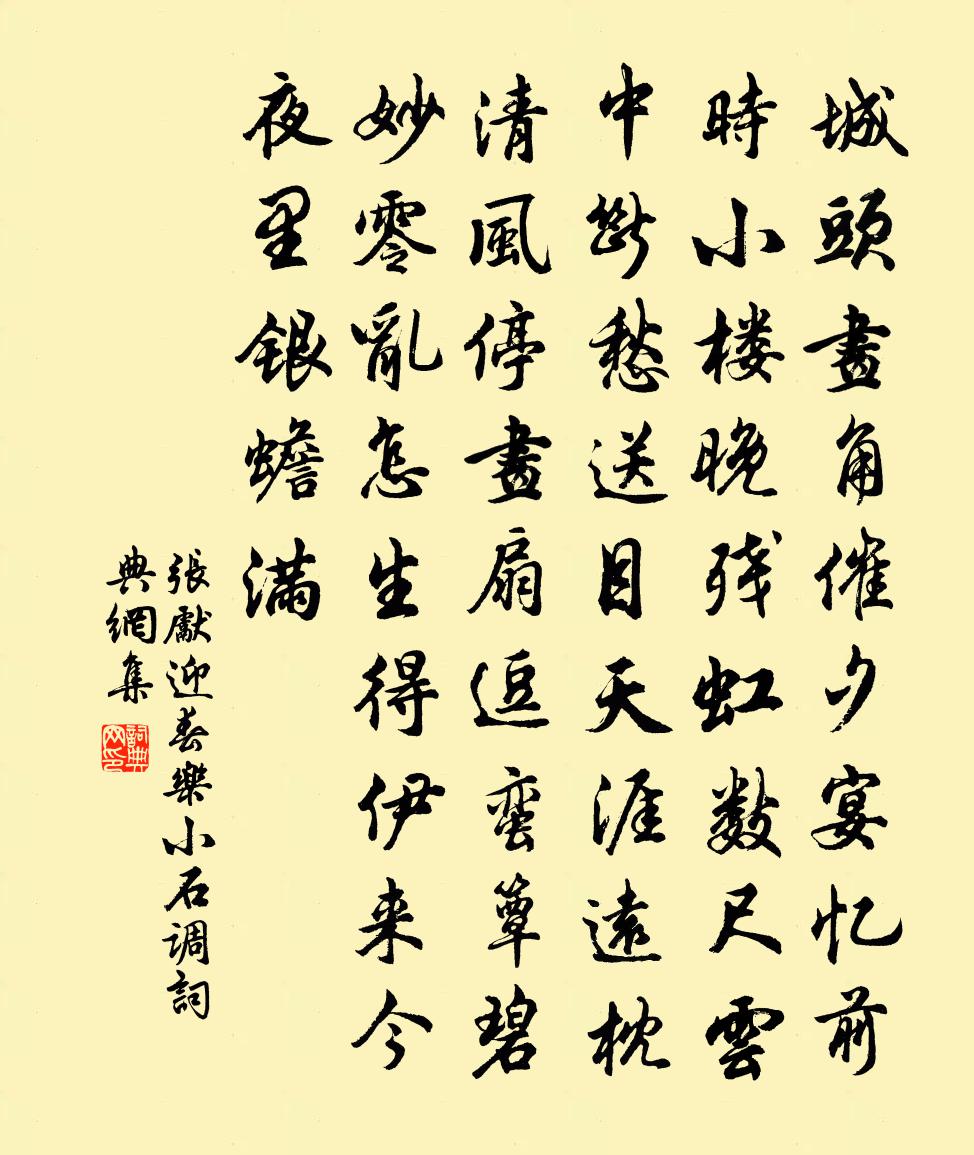 城頭畫角催夕宴忆前
時小楼晚残虹数尺雲
中斷愁送目天涯遠枕
清風停畫扇逗蛮簟碧
妙零亂怎生得伊来今
夜里銀蟾满
張獻迎春樂小石调詞
典網集
詞典网印